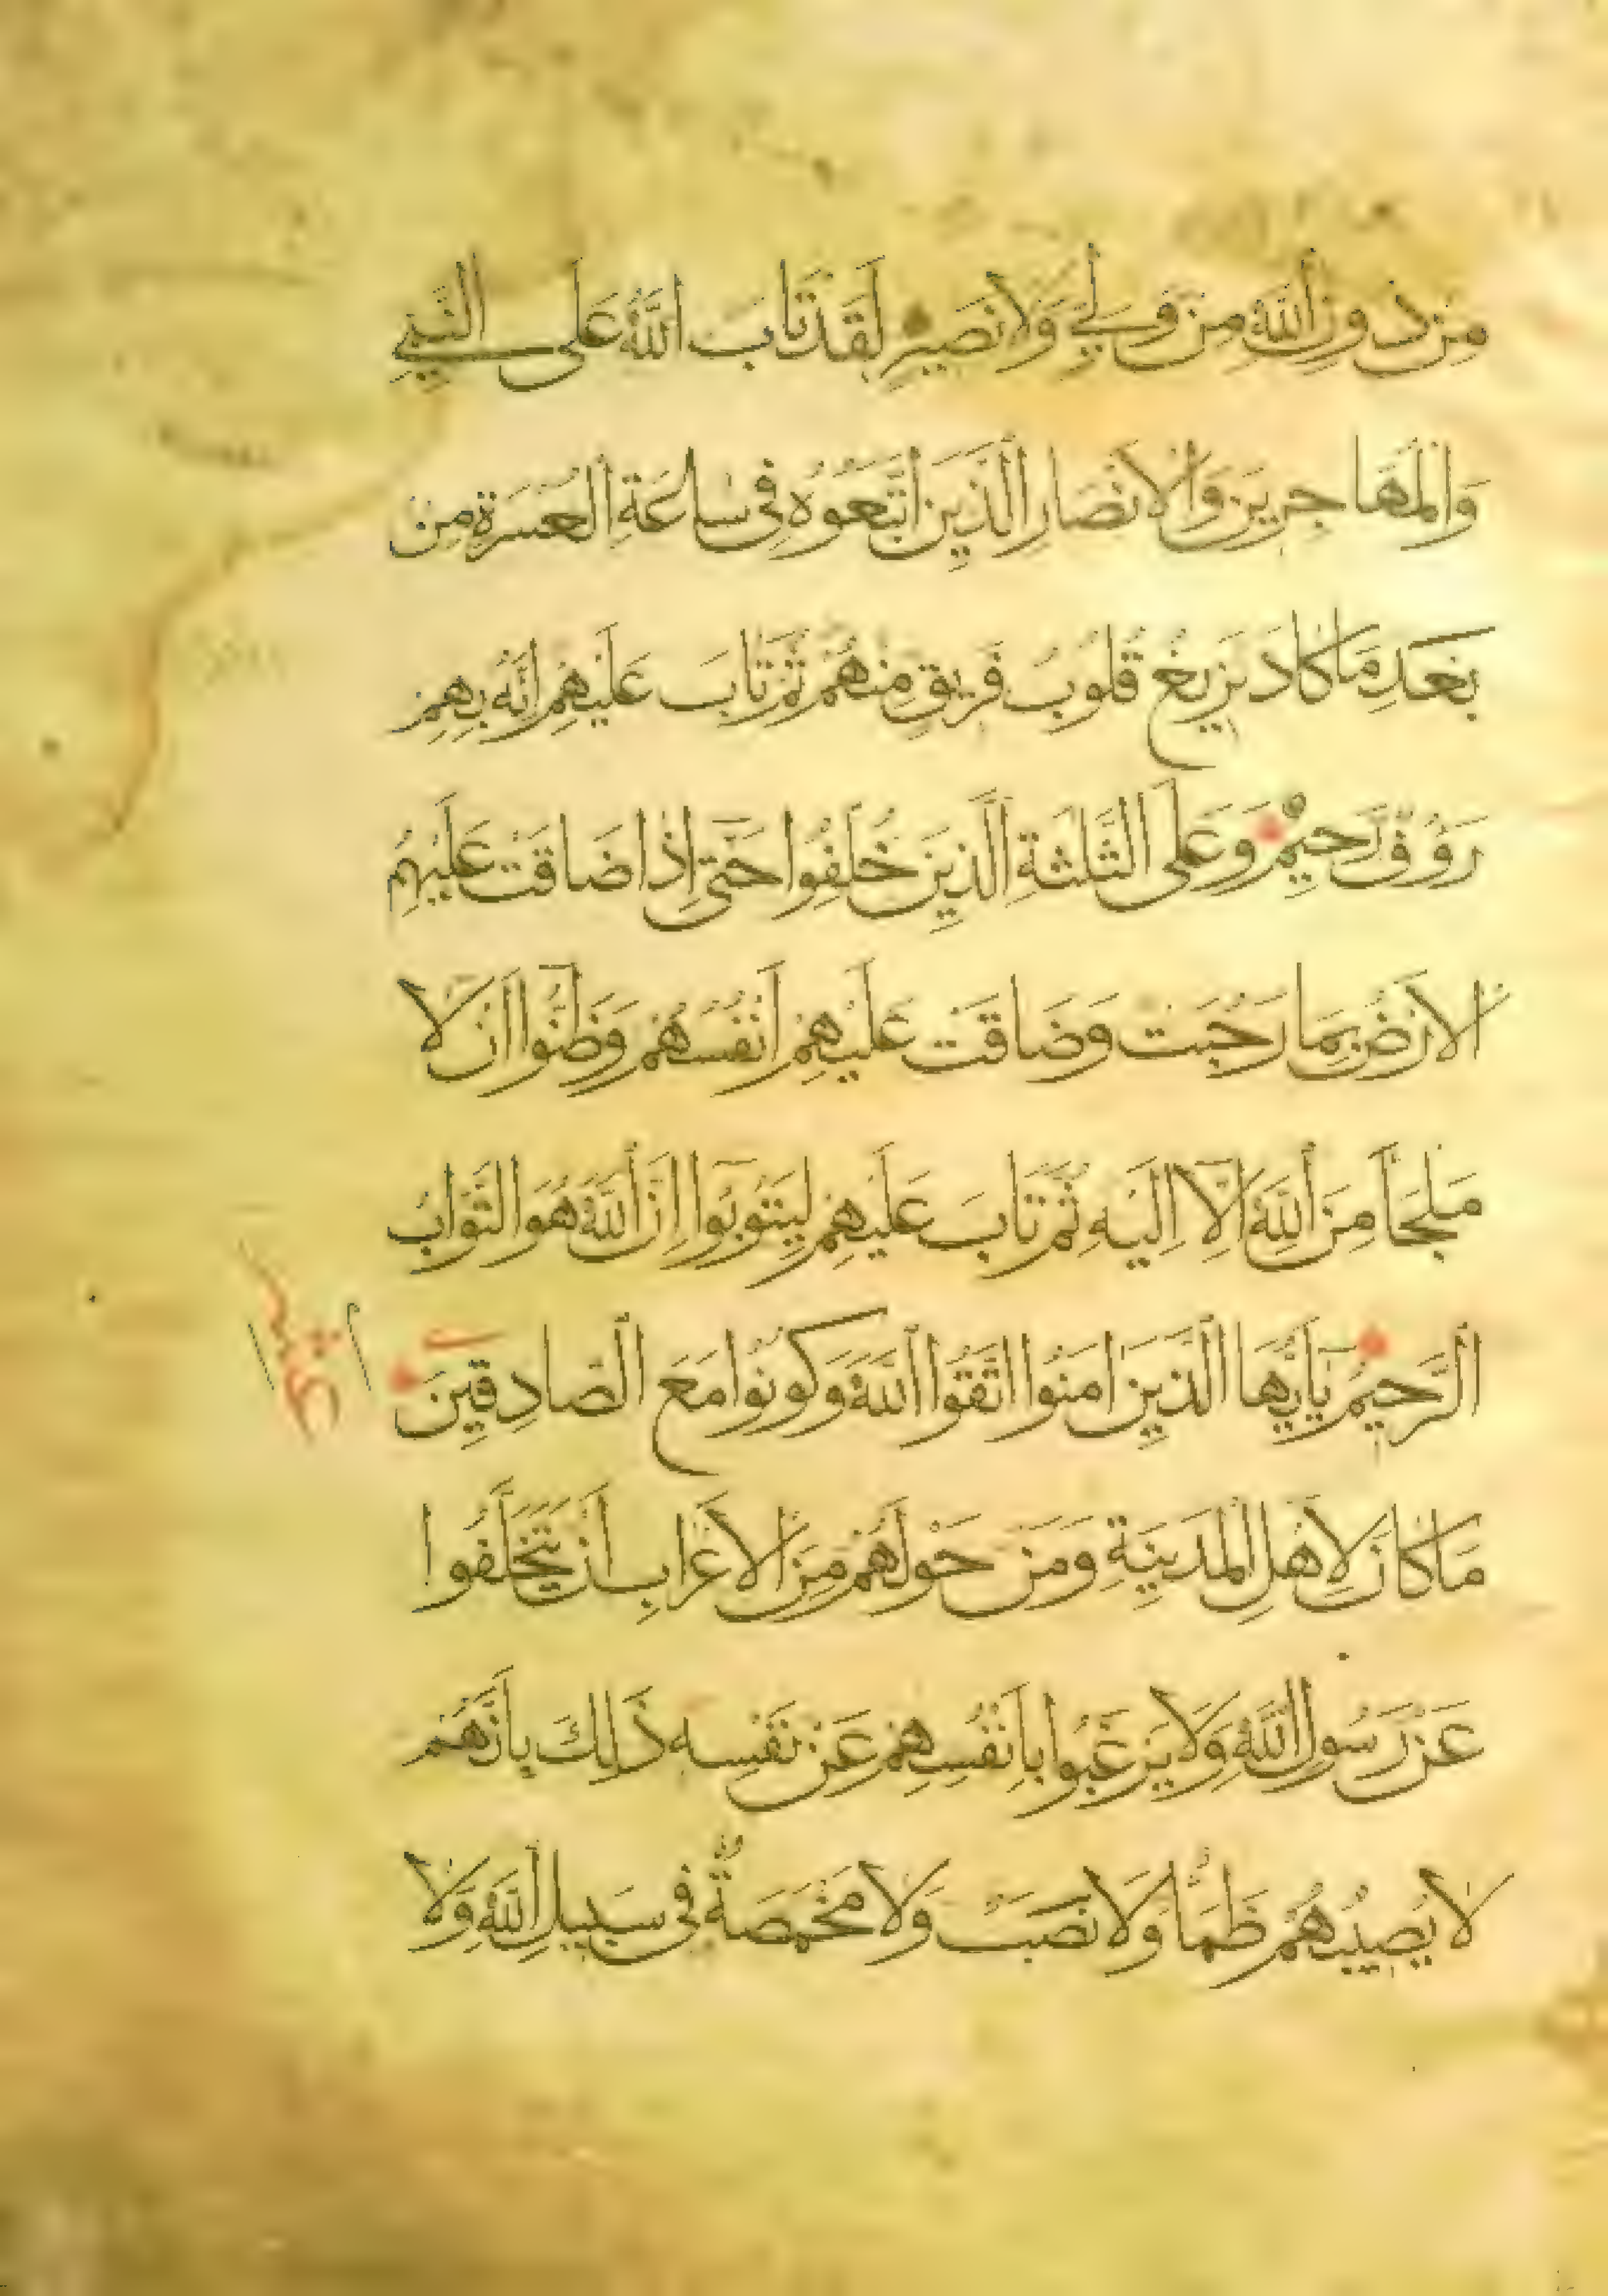 مِنْ دُونِ اللَّهِ مِنْ وَلِيٍّ وَلَا نَصِيرٍ لَقَدْ تَابَ اللَّهُ عَلَى النَّبِيِّ
وَالْمُهَاجِرِينَ وَالْأَنْصَارِ الَّذِينَ اتَّبَعُوهُ فِي سَاعَةِ الْعُسْرَةِ مِنْ
بَعْدِ مَا كَادَ يَزِيغُ قُلُوبُ فَرِيقٍ مِنْهُمْ ثُمَّ تَابَ عَلَيْهِمْ إِنَّهُ بِهِمْ
رَؤُفٌ رَحِيمٌ وَعَلَى الثَّلٰثَةِ الَّذِينَ خُلِّفُوا حَتَّى إِذَا ضَاقَتْ عَلَيْهِمُ
الْأَرْضُ بِمَا رَحُبَتْ وَضَاقَتْ عَلَيْهِمْ أَنْفُسُهُمْ وَظَنُّوا أَنْ لَا
مَلْجَأَ مِنَ اللَّهِ إِلَّا إِلَيْهِ ثُمَّ تَابَ عَلَيْهِمْ لِيَتُوبُوا إِنَّ اللَّهَ هُوَ التَّوَّابُ
الرَّحِيمُ يَاأَيُّهَا الَّذِينَ اٰمَنُوا اتَّقُوا اللَّهَ وَكُونُوا مَعَ الصَّادِقِينَ
مَا كَانَ لِأَهْلِ الْمَدِينَةِ وَمَنْ حَوْلَهُمْ مِنَ الْأَعْرَابِ أَنْ يَتَخَلَّفُوا
عَنْ رَسُولِ اللَّهِ وَلَا يَرْغَبُوا بِأَنْفُسِهِمْ عَنْ نَفْسِهِ ذٰلِكَ بِأَنَّهُمْ
لَا يُصِيبُهُمْ ظَمَأٌ وَلَا نَصَبٌ وَلَا مَخْمَصَةٌ فِي سَبِيلِ اللَّهِ وَلَا